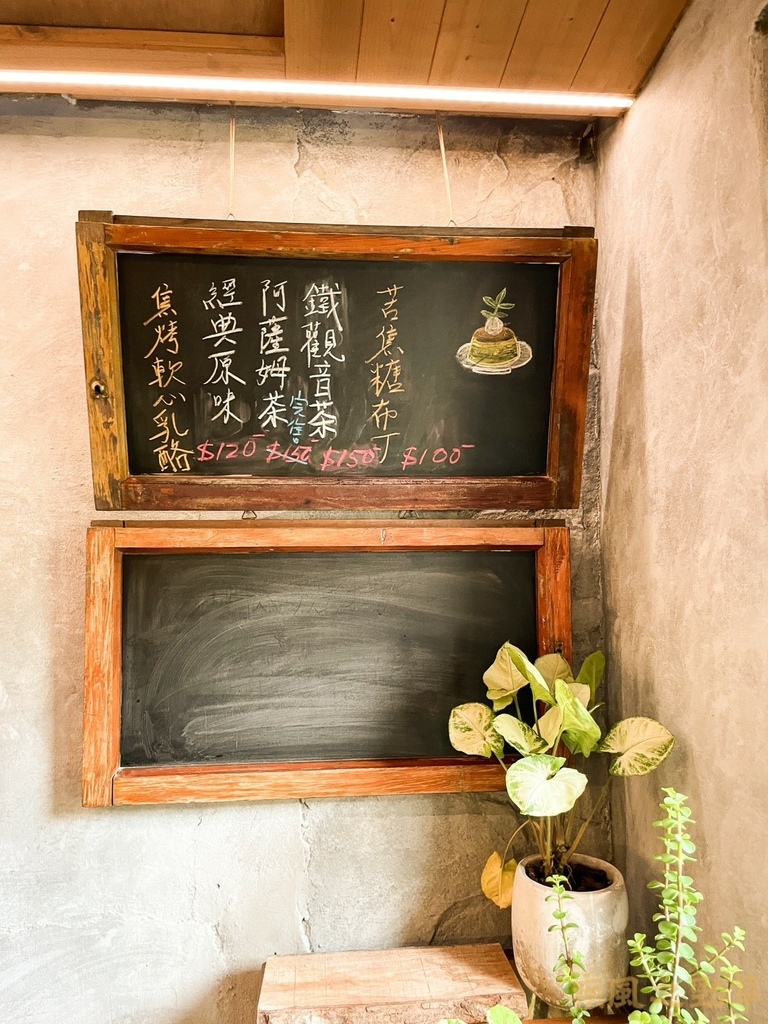 焦烤軟心乳酪
經典原味
$120
阿薩姆茶
$150
完售
鐵觀音茶
$150
苦焦糖布丁
$100